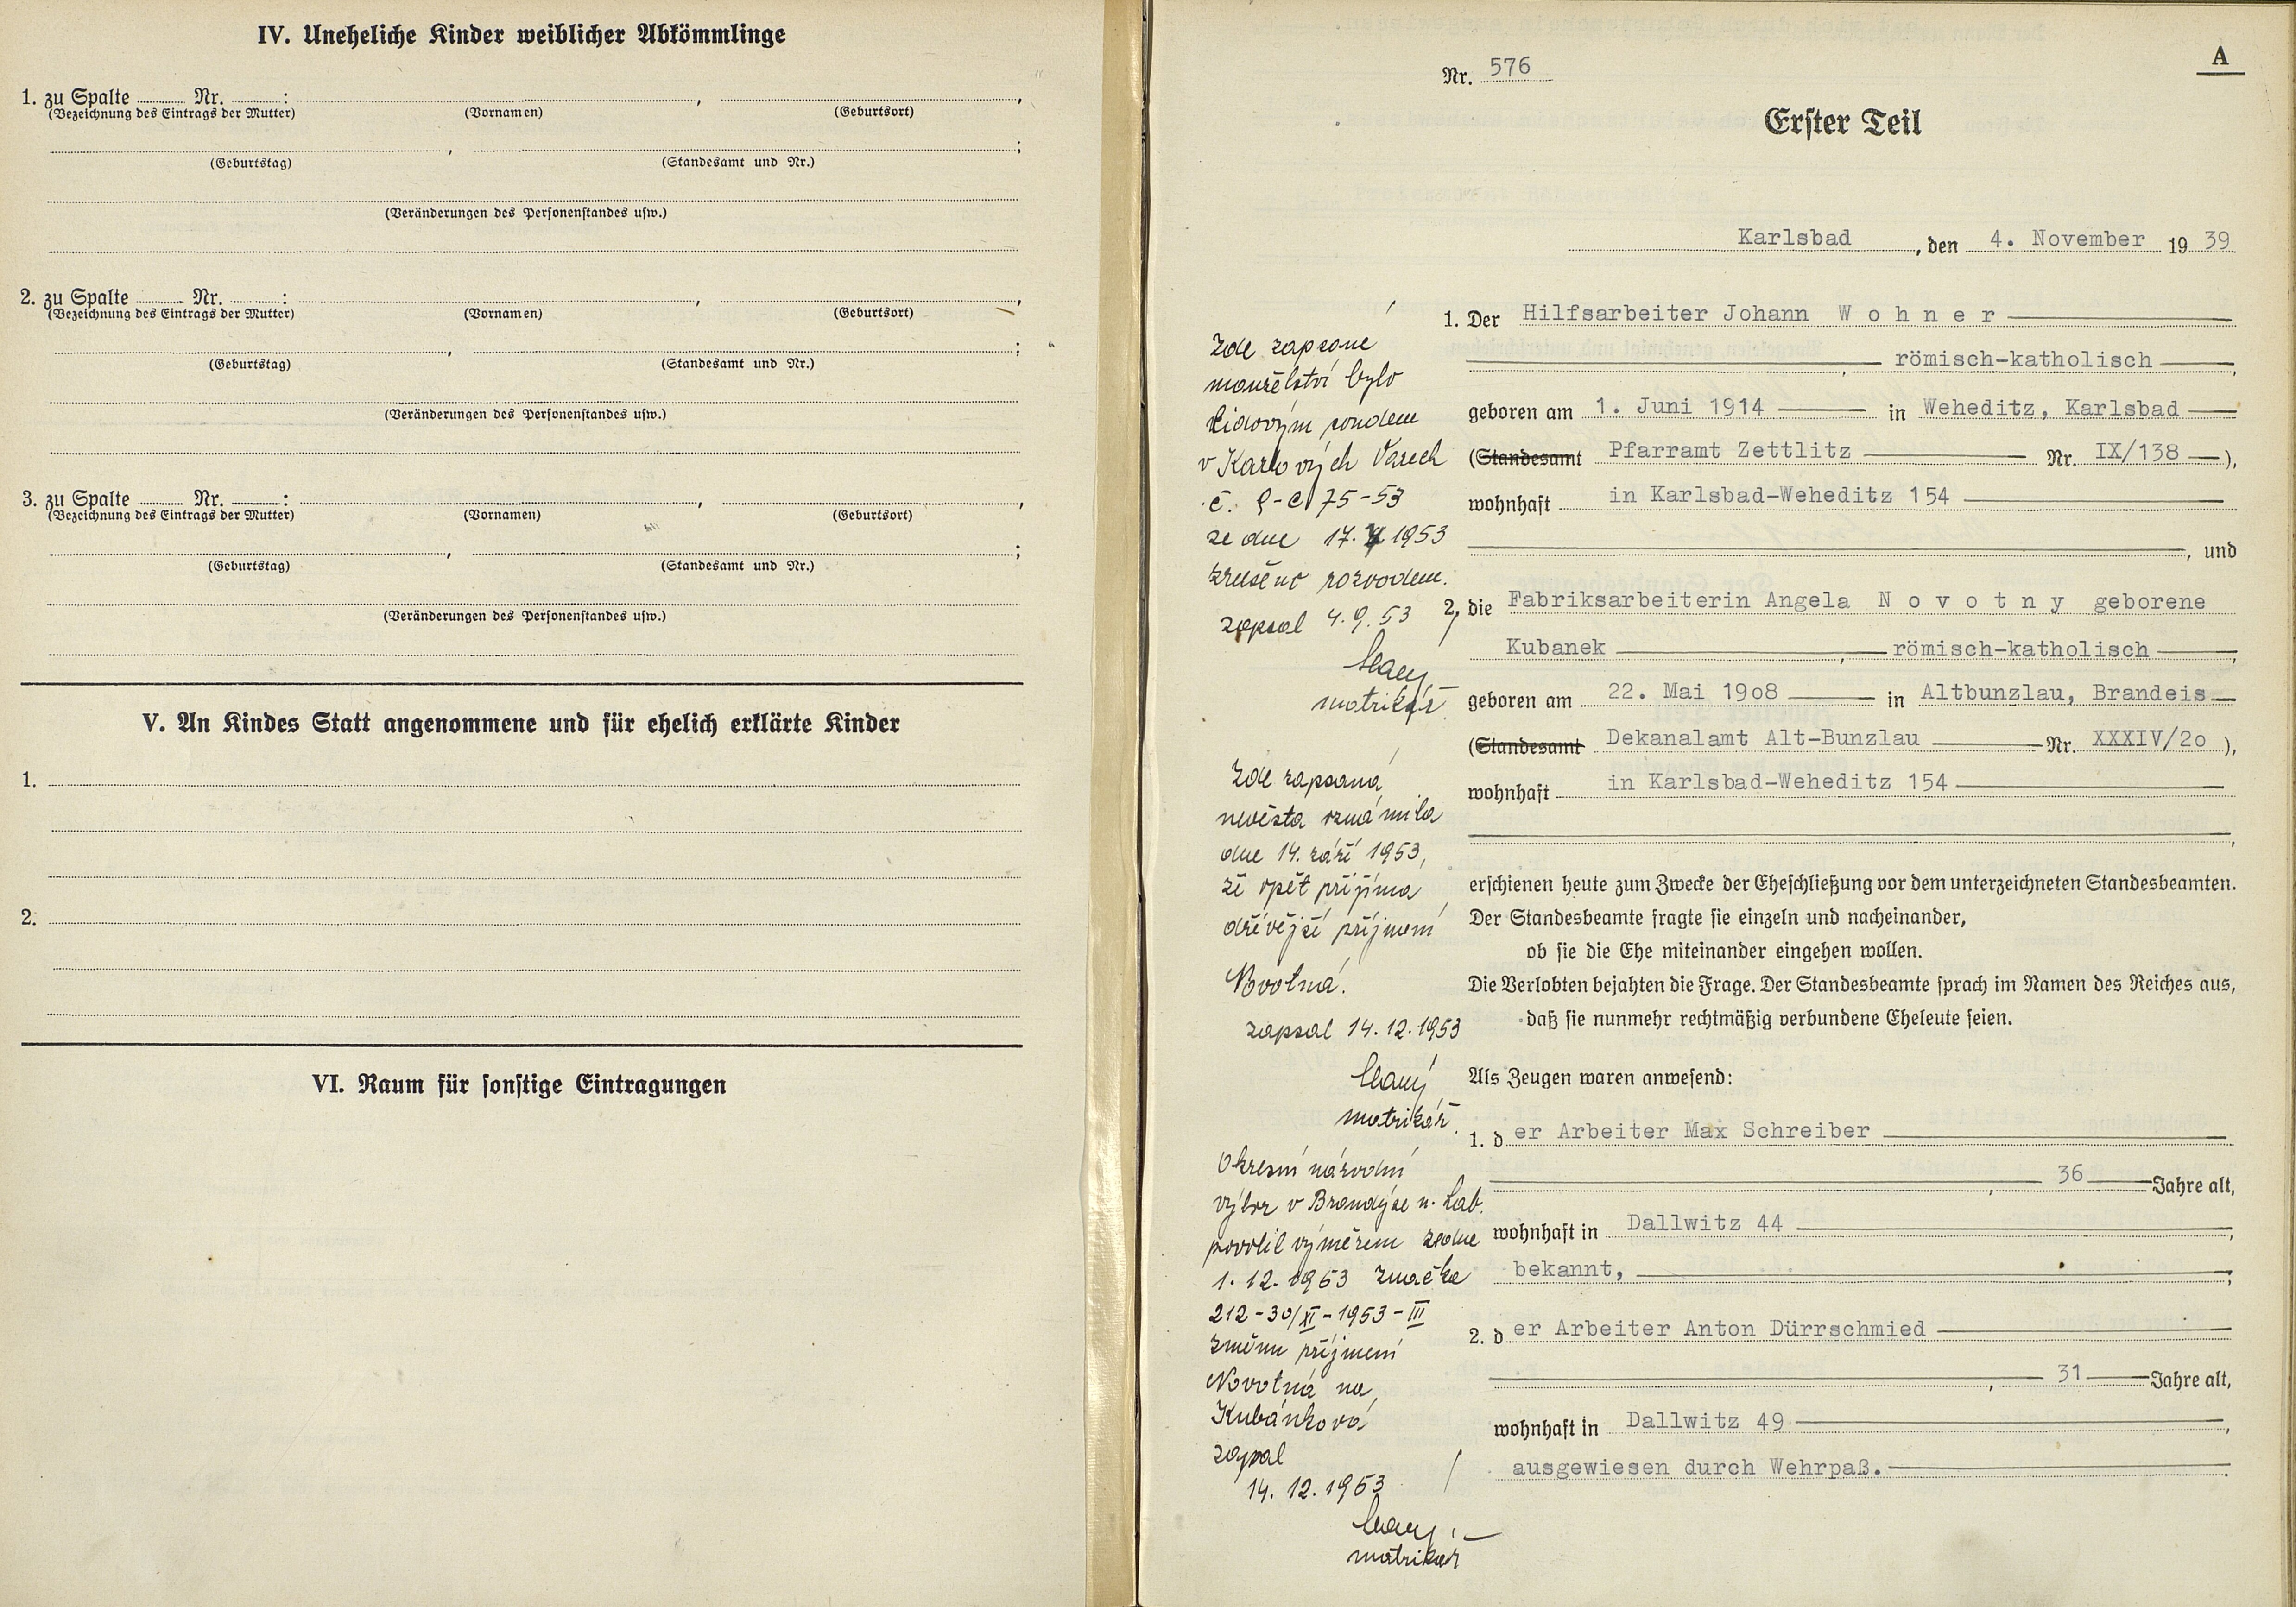 IV. Uneheliche Kinder weiblicher Abkömmlinge
1. zu Spalte ........ Nr. ........ : ........ , ........ ,
(Bezeichnung des Eintrags der Mutter) (Vornamen) (Geburtsort)
........ , ........ ;
(Geburtstag) (Standesamt und Nr.)
(Veränderungen des Personenstandes usw.)
2. zu Spalte ........ Nr. ........ : ........ , ........ ,
(Bezeichnung des Eintrags der Mutter) (Vornamen) (Geburtsort)
........ , ........ ;
(Geburtstag) (Standesamt und Nr.)
(Veränderungen des Personenstandes usw.)
3. zu Spalte ........ Nr. ........ : ........ , ........ ,
(Bezeichnung des Eintrags der Mutter) (Vornamen) (Geburtsort)
........ , ........ ;
(Geburtstag) (Standesamt und Nr.)
(Veränderungen des Personenstandes usw.)
V. An Kindes Statt angenommene und für ehelich erklärte Kinder
1.
2.
VI. Raum für sonstige Eintragungen
A
Nr. 576
Erster Teil
Karlsbad , den 4. November 19 39
1. Der Hilfsarbeiter Johann W o h n e r
, römisch-katholisch ,
geboren am 1. Juni 1914 in Weheditz, Karlsbad
(Standesamt Pfarramt Zettlitz Nr. IX/138 ),
wohnhaft in Karlsbad-Weheditz 154
, und
2, die Fabriksarbeiterin Angela N o v o t n y geborene
Kubanek , römisch-katholisch ,
geboren am 22. Mai 19o8 in Altbunzlau, Brandeis
(Standesamt Dekanalamt Alt-Bunzlau Nr. XXXIV/2o ),
wohnhaft in Karlsbad-Weheditz 154
,
erschienen heute zum Zwecke der Eheschließung vor dem unterzeichneten Standesbeamten.
Der Standesbeamte fragte sie einzeln und nacheinander,
ob sie die Ehe miteinander eingehen wollen.
Die Verlobten bejahten die Frage. Der Standesbeamte sprach im Namen des Reiches aus,
daß sie nunmehr rechtmäßig verbundene Eheleute seien.
Als Zeugen waren anwesend:
1. d er Arbeiter Max Schreiber
, 36 Jahre alt,
wohnhaft in Dallwitz 44 ,
bekannt, ;
2. d er Arbeiter Anton Dürrschmied
, 31 Jahre alt,
wohnhaft in Dallwitz 49 ,
ausgewiesen durch Wehrpaß.
Zde zapsané
manželství bylo
lidovým soudem
v Karlových Varech
č. 75-53
ze dne 17. 1953
zrušeno rozvodem.
zapsal 4.9.53
matrikář
Zde zapsaná
nevěsta oznámila
dne 14. září 1953,
že opět přijímá
dřívější příjmení
Novotná.
zapsal 14.12.1953
matrikář.
Okresní národní
výbor v Brandýse n. Lab.
povolil výměrem ze dne
1.12.1953 značka
212-30/XI-1953-III
změnu příjmení
Novotná na
Kubánková
zapsal
14.12.1953
matrikář